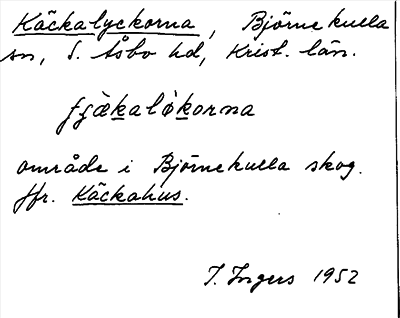 Käckalyckorna, Björnekulla
sn, S. Åsbo hd, Krist. län.
område i Björnekulla skog.
Jfr. Käckahus.
I. Ingers 1952